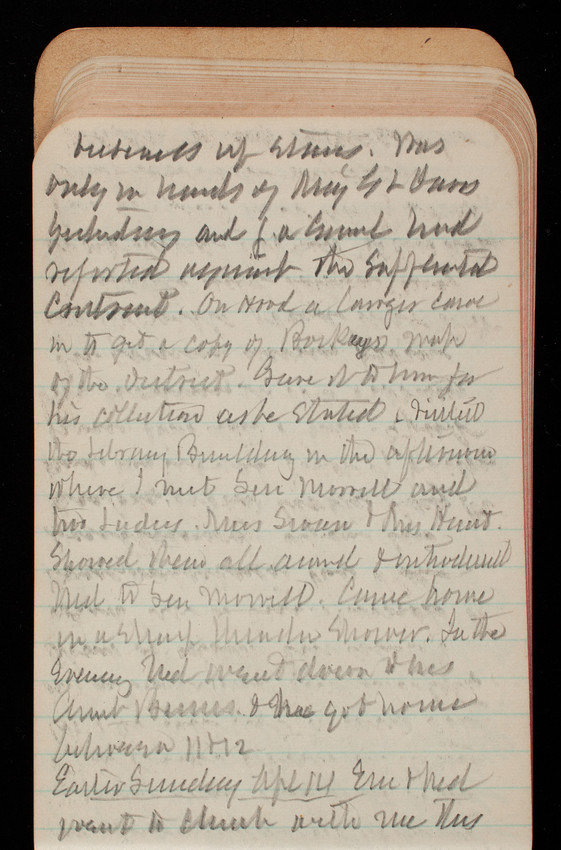 of Stairs. Was
only in hands of Maj G L Davis
yesterday and a Council had
reported against the Supplemental
Contract. On Hood a lawyer came
in to get a copy of map
of the District. Gave it to him for
his collection as he stated. Visited
the Library Building in the afternoon
where I met Sen Morrill and
two Ladies. Miss Swan & Mrs Hunt.
Showed them all around & introduced
Ned to Sen Morrill. Came home
in a Sharp Thunder Shower. In the
Evening Ned went down to his
Aunt & has got home
between 11 & 12
Easter Sunday Apl 14 Em & Ned
went to Church with me this